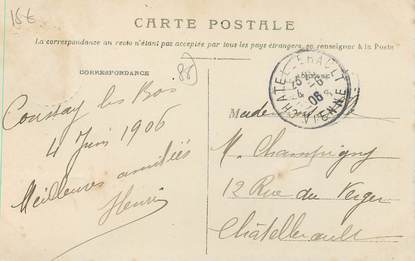 15€
CARTE POSTALE
La correspondance au recto n'étant pas acceptée par tous les pays étrangers, se renseigner à la Poste
CORRESPONDANCE
86
Coussay les Bois
4 Juin 1906
Meilleures amitiés
Henri
CHATELLERAULT
4 -6
06
VIENNE
M. Champigny
12 Rue du Verger
Châtellerault